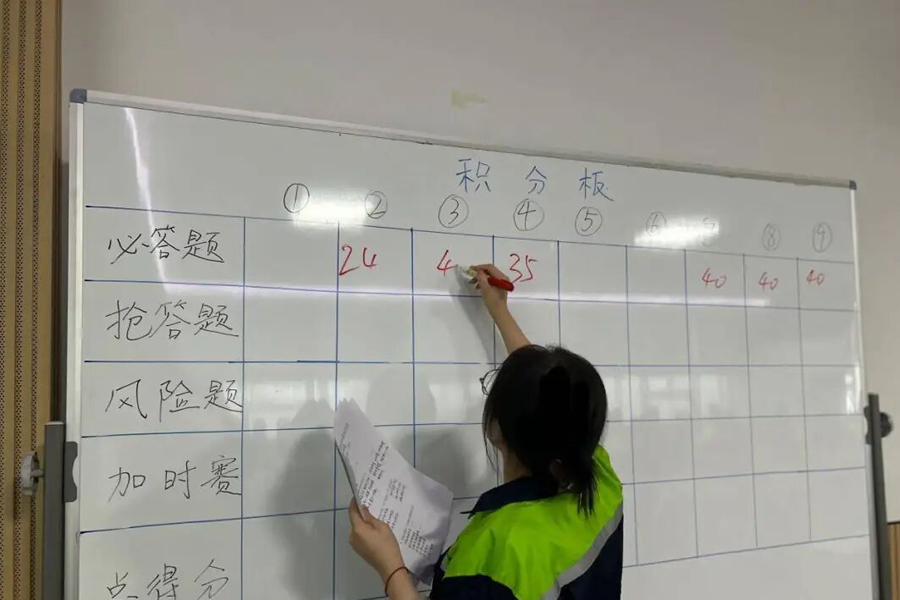 积分板
① ② ③ ④ ⑤ ⑥ ⑦ ⑧ ⑨
必答题 24 4 35 40 40 40
抢答题
风险题
加时赛
总得分